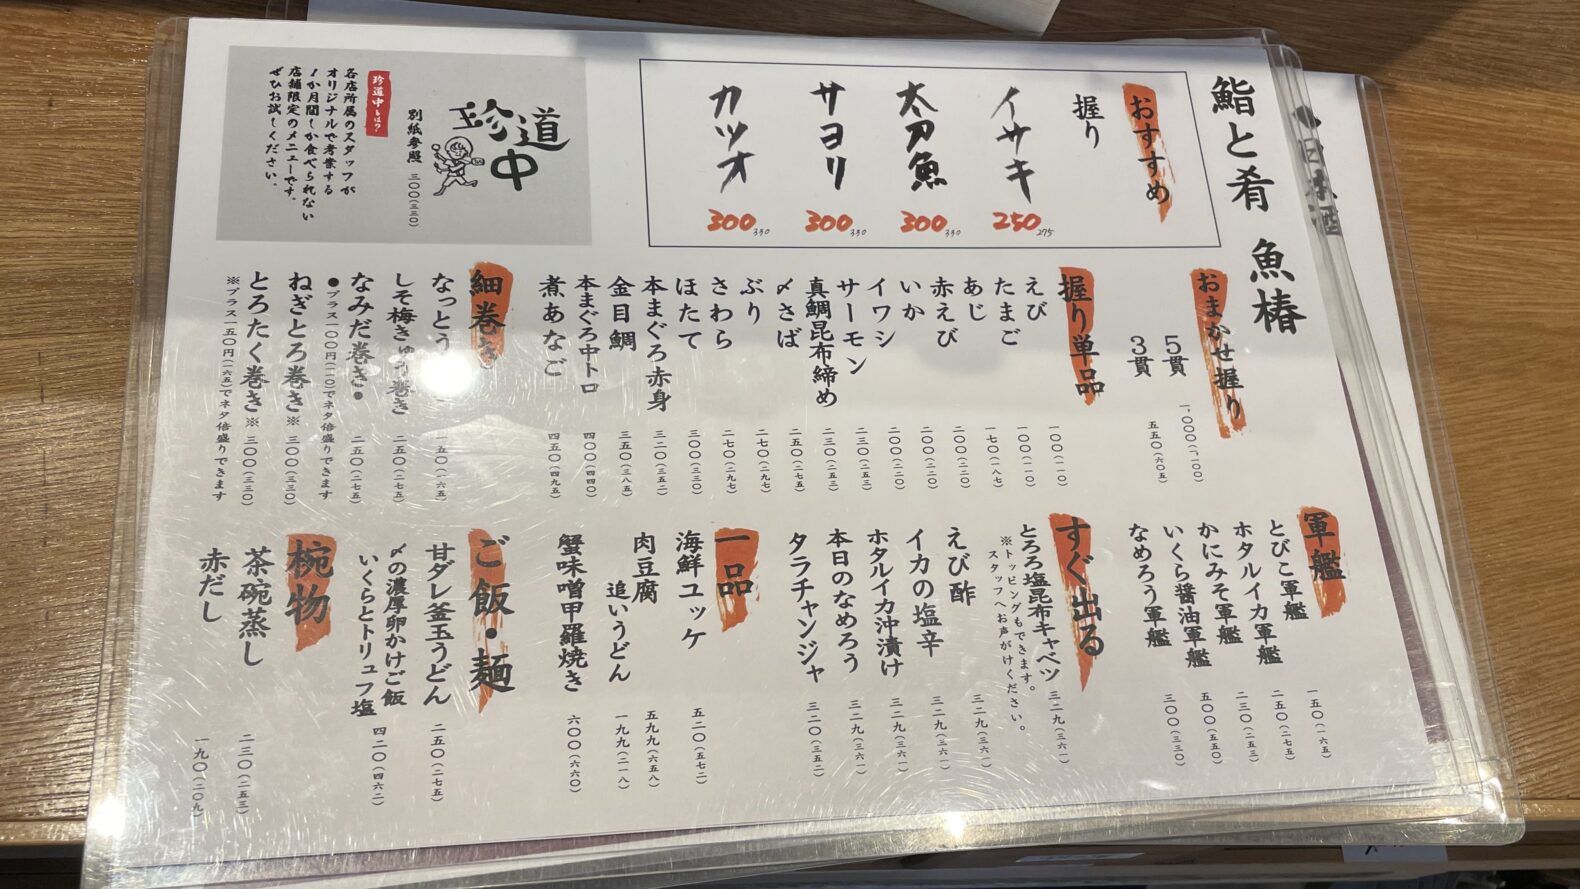 鮨と肴 魚椿
おすすめ
握り
イサキ 250 275
太刀魚 300 330
サヨリ 300 330
カツオ 300 330
珍道中
別紙参照 三〇〇(三三〇)
珍道中とは?
各店所属のスタッフが
オリジナルで考案する
1か月間しか食べられない
店舗限定のメニューです。
ぜひお試しください。
おまかせ握り
5貫 一,〇〇〇(一,一〇〇)
3貫 五五〇(六〇五)
握り単品
えび 一〇〇(一一〇)
たまご 一〇〇(一一〇)
あじ 一七〇(一八七)
赤えび 二〇〇(二二〇)
いか 二〇〇(二二〇)
イワシ 二〇〇(二二〇)
サーモン 二三〇(二五三)
真鯛昆布締め 二三〇(二五三)
〆さば 二五〇(二七五)
ぶり 二七〇(二九七)
さわら 二七〇(二九七)
ほたて 三〇〇(三三〇)
本まぐろ赤身 三二〇(三五二)
金目鯛 三五〇(三八五)
本まぐろ中トロ 四〇〇(四四〇)
煮あなご 四五〇(四九五)
細巻き
なっとう 一五〇(一六五)
しそ梅きゅう巻き 二五〇(二七五)
なみだ巻き● 二五〇(二七五)
●プラス一〇〇円(一一〇)でネタ倍盛りできます
ねぎとろ巻き※ 三〇〇(三三〇)
とろたく巻き※ 三〇〇(三三〇)
※プラス一五〇円(一六五)でネタ倍盛りできます
軍艦
とびこ軍艦 一五〇(一六五)
ホタルイカ軍艦 二五〇(二七五)
かにみそ軍艦 二三〇(二五三)
いくら醤油軍艦 五〇〇(五五〇)
なめろう軍艦 三〇〇(三三〇)
すぐ出る
とろろ塩昆布キャベツ 三二九(三六一)
※トッピングもできます。
スタッフへお声がけください。
えび酢 三二九(三六一)
イカの塩辛 三二九(三六一)
ホタルイカ沖漬け 三二九(三六一)
本日のなめろう 三二九(三六一)
タラチャンジャ 三二〇(三五二)
一品
海鮮ユッケ 五二〇(五七二)
肉豆腐 五九九(六五八)
追いうどん 一九九(二一八)
蟹味噌甲羅焼き 六〇〇(六六〇)
ご飯・麺
甘ダレ釜玉うどん 二五〇(二七五)
〆の濃厚卵かけご飯
いくらとトリュフ塩 四二〇(四六二)
椀物
茶碗蒸し 二三〇(二五三)
赤だし 一九〇(二〇九)
日本酒